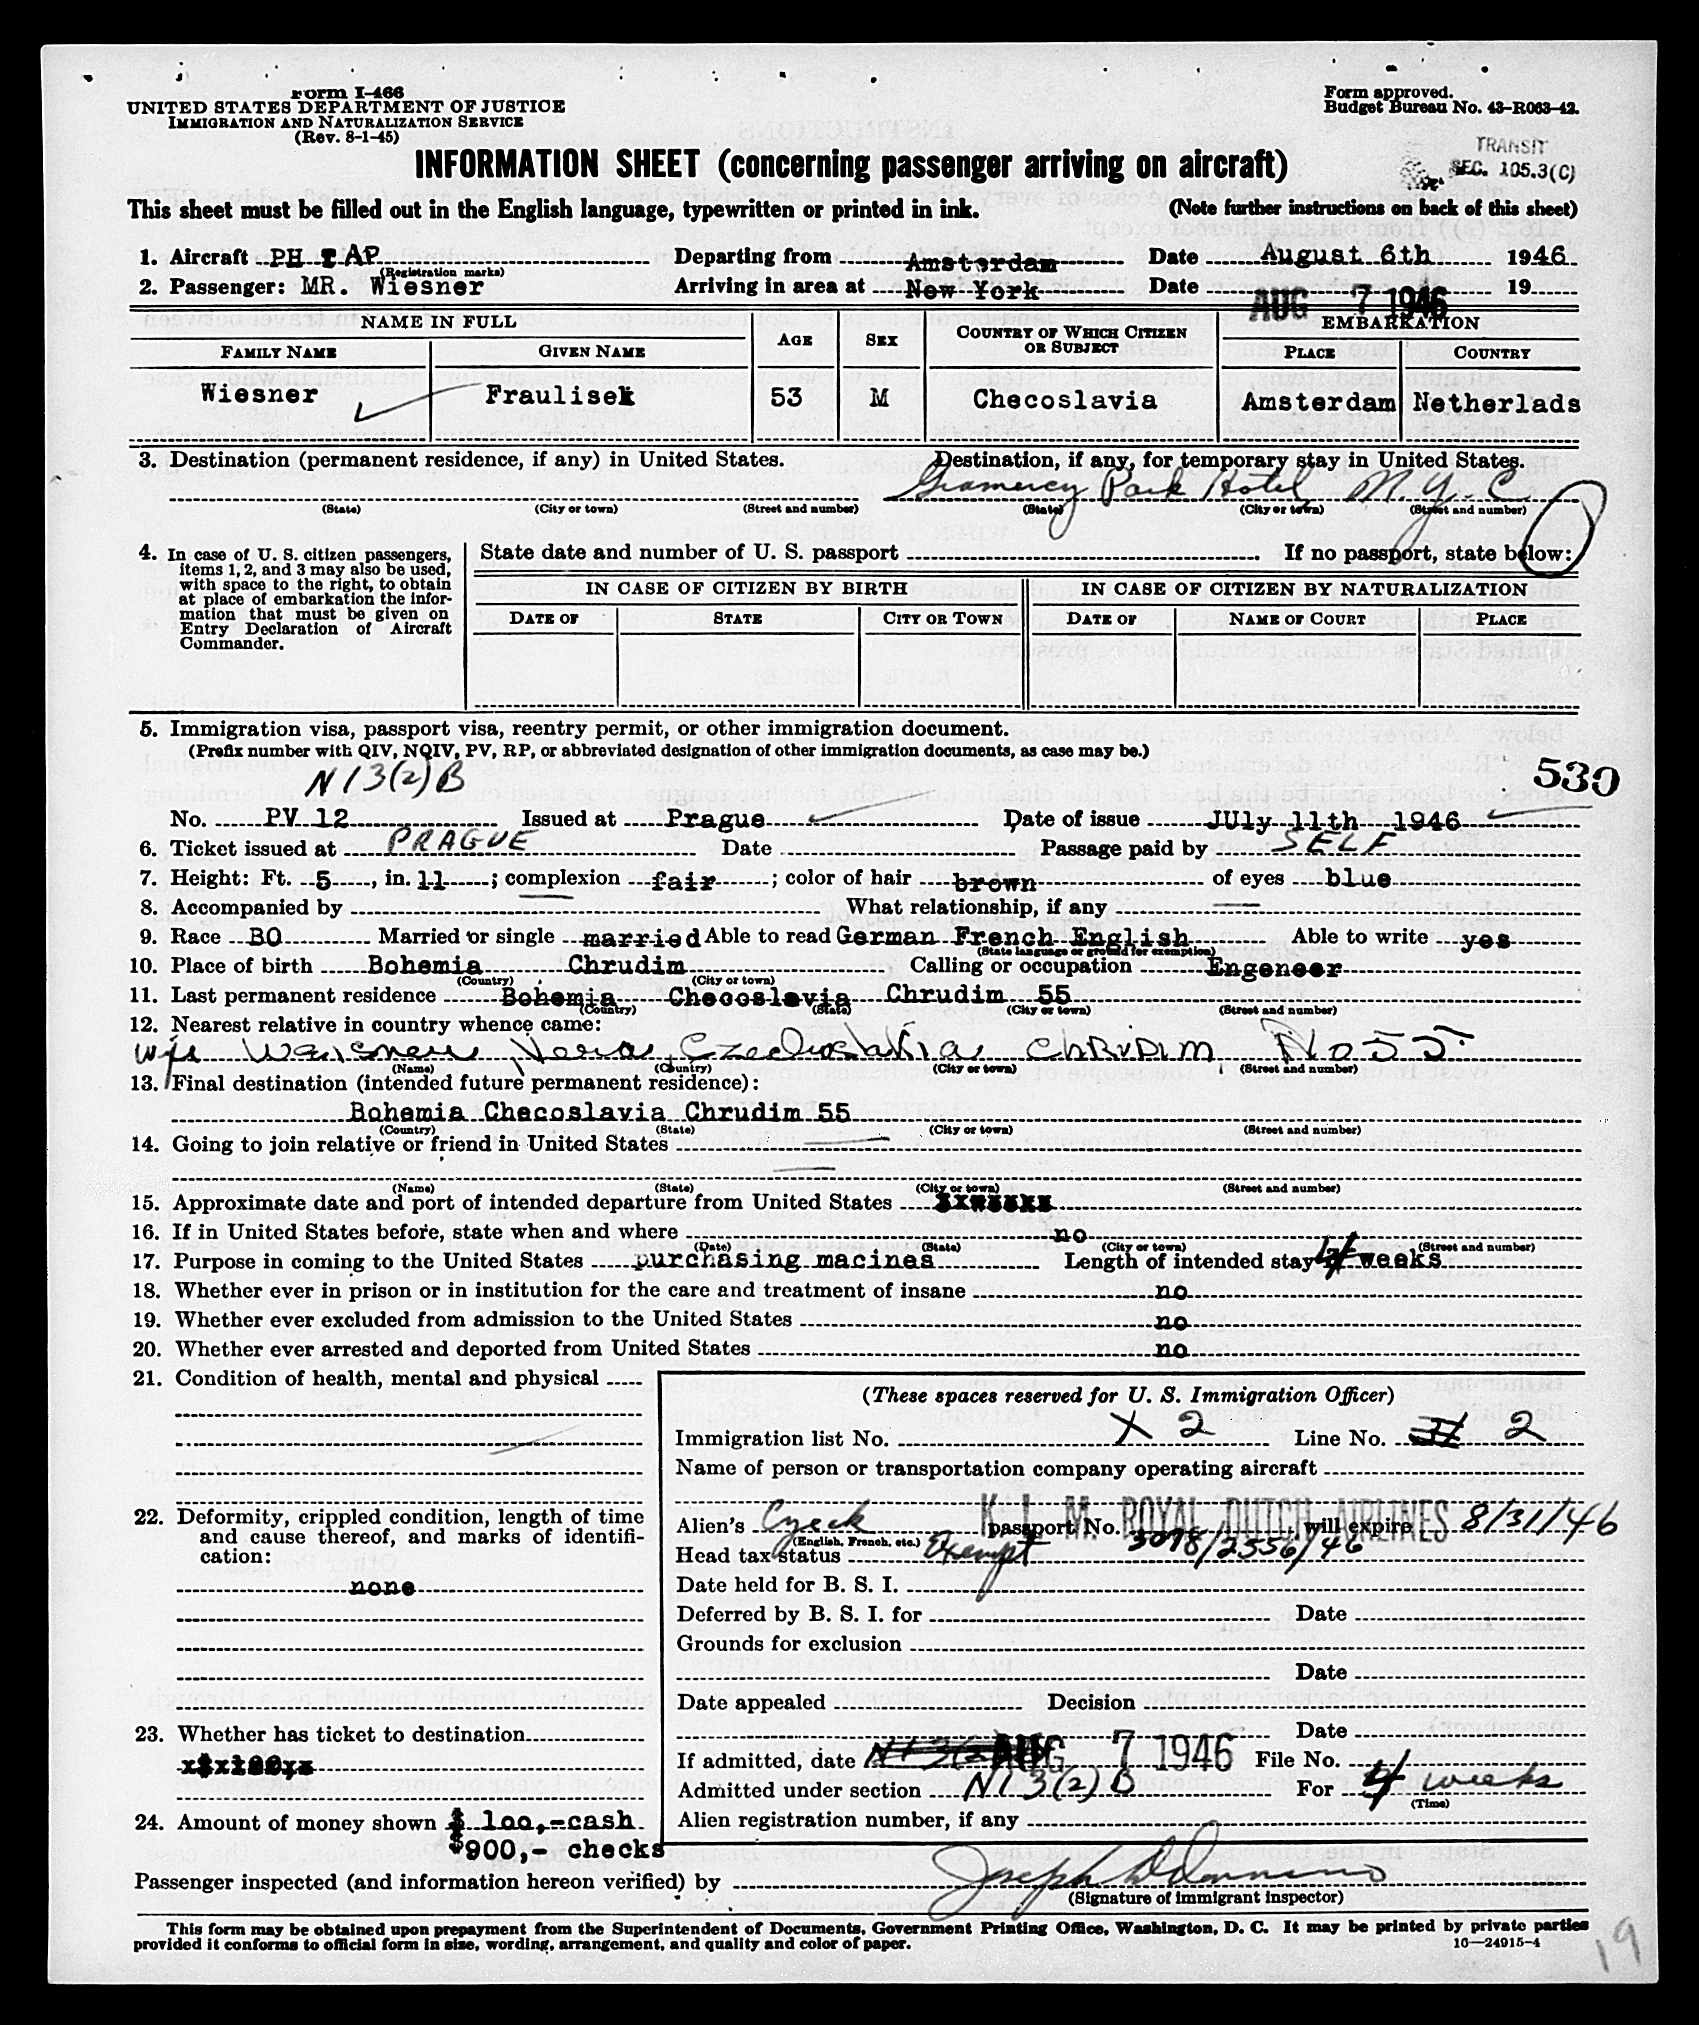 Form I-466
UNITED STATES DEPARTMENT OF JUSTICE
IMMIGRATION AND NATURALIZATION SERVICE
(Rev. 8-1-45)
Form approved.
Budget Bureau No. 43-R063-42.
TRANSIT
SEC. 105.3(C)
INFORMATION SHEET (concerning passenger arriving on aircraft)
This sheet must be filled out in the English language, typewritten or printed in ink. (Note further instructions on back of this sheet)
1. Aircraft PH TAP Departing from Amsterdam Date August 6th 1946
(Registration marks)
2. Passenger: MR. Wiesner Arriving in area at New York Date AUG 7 1946 19
NAME IN FULL AGE SEX COUNTRY OF WHICH CITIZEN OR SUBJECT EMBARKATION
FAMILY NAME GIVEN NAME PLACE COUNTRY
Wiesner Fraulisek 53 M Checoslavia Amsterdam Netherlads
3. Destination (permanent residence, if any) in United States. Destination, if any, for temporary stay in United States.
Gramercy Park Hotel N.Y.C.
(State) (City or town) (Street and number) (State) (City or town) (Street and number)
4. In case of U. S. citizen passengers, items 1, 2, and 3 may also be used, with space to the right, to obtain at place of embarkation the information that must be given on Entry Declaration of Aircraft Commander.
State date and number of U. S. passport If no passport, state below:
IN CASE OF CITIZEN BY BIRTH IN CASE OF CITIZEN BY NATURALIZATION
DATE OF STATE CITY OR TOWN DATE OF NAME OF COURT PLACE
5. Immigration visa, passport visa, reentry permit, or other immigration document.
(Prefix number with QIV, NQIV, PV, RP, or abbreviated designation of other immigration documents, as case may be.)
N 13(2)B 530
No. PV 12 Issued at Prague Date of issue JUly 11th 1946
6. Ticket issued at PRAGUE Date Passage paid by SELF
7. Height: Ft. 5, in. 11; complexion fair; color of hair brown of eyes blue
8. Accompanied by What relationship, if any
9. Race BO Married or single married Able to read German French English Able to write yes
(State language or ground for exemption)
10. Place of birth Bohemia Chrudim Calling or occupation Engeneer
(Country) (City or town)
11. Last permanent residence Bohemia Checoslavia Chrudim 55
(Country) (State) (City or town) (Street and number)
12. Nearest relative in country whence came:
Wife Vera Czechoslakia CHRUDIM No 55
(Name) (Country) (City or town) (Street and number)
13. Final destination (intended future permanent residence):
Bohemia Checoslavia Chrudim 55
(Country) (State) (City or town) (Street and number)
14. Going to join relative or friend in United States
(Name) (State) (City or town) (Street and number)
15. Approximate date and port of intended departure from United States
16. If in United States before, state when and where no
(Date) (State) (City or town) (Street and number)
17. Purpose in coming to the United States purchasing macines Length of intended stay 4 weeks
18. Whether ever in prison or in institution for the care and treatment of insane no
19. Whether ever excluded from admission to the United States no
20. Whether ever arrested and deported from United States no
21. Condition of health, mental and physical
22. Deformity, crippled condition, length of time and cause thereof, and marks of identification:
none
23. Whether has ticket to destination
24. Amount of money shown $ 100,-cash
$900,- checks
(These spaces reserved for U. S. Immigration Officer)
Immigration list No. X 2 Line No. 2
Name of person or transportation company operating aircraft
K. L. M. ROYAL DUTCH AIRLINES
Alien's Czeck passport No. 3098/2556/46 will expire 8/31/46
(English, French, etc.)
Head tax status Exempt
Date held for B. S. I.
Deferred by B. S. I. for Date
Grounds for exclusion
Date
Date appealed Decision
Date
If admitted, date AUG 7 1946 File No.
Admitted under section N 1 3(2) B For 4 weeks
(Time)
Alien registration number, if any
Passenger inspected (and information hereon verified) by Joseph
(Signature of immigrant inspector)
This form may be obtained upon prepayment from the Superintendent of Documents, Government Printing Office, Washington, D. C. It may be printed by private parties
provided it conforms to official form in size, wording, arrangement, and quality and color of paper. 16—24915-4
19